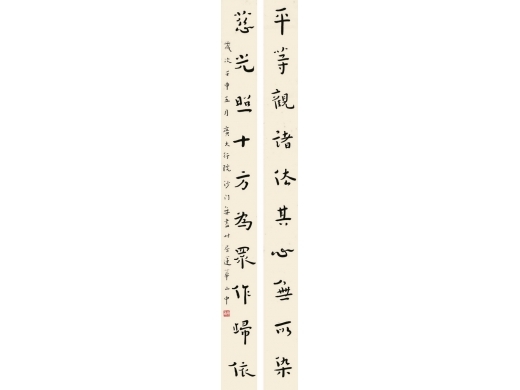 平等觀諸法其心無所染
慈光照十方為眾作歸依
歲次壬申五月